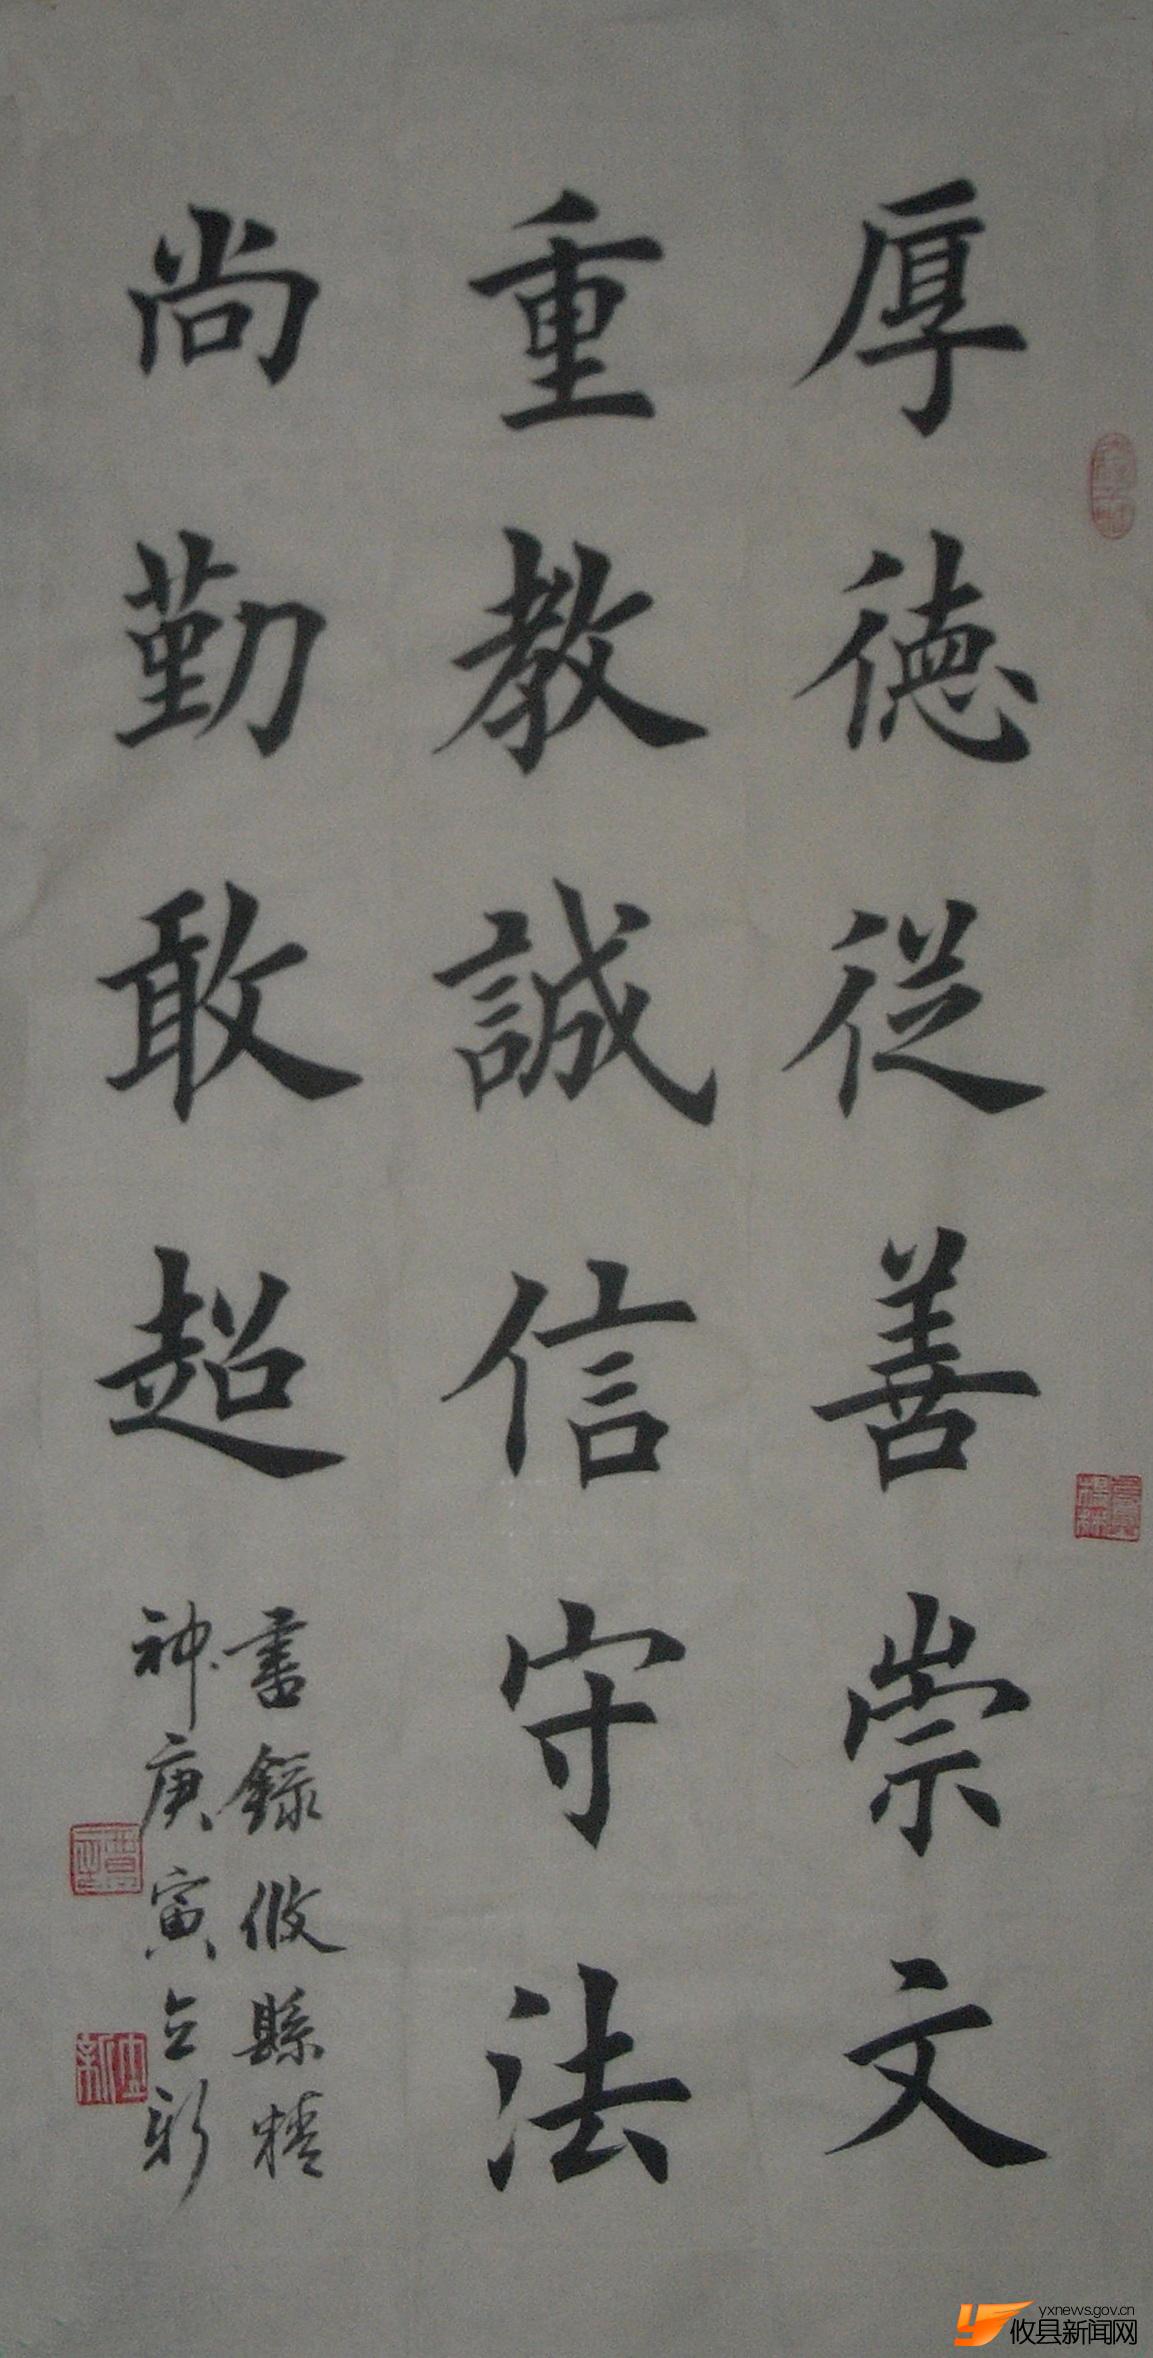 厚德從善崇文
重教誠信守法
尚勤敢超
書錄攸縣精
神庚寅立新
yxnews.gov.cn
攸县新闻网